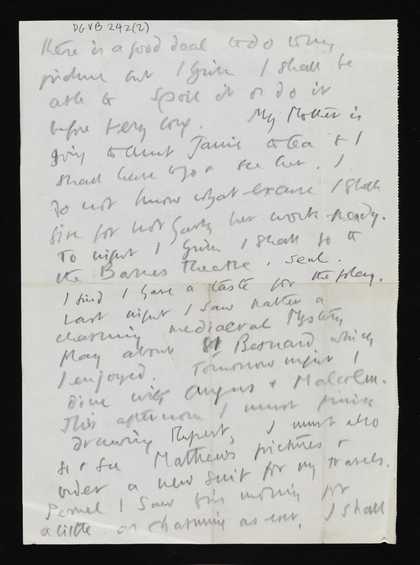 DGVB 242(2)
There is a good deal to do to my
picture but I think I shall be
able to spoil it or do it
before very long. My Mother is
going to Aunt Janie to tea & I
shall have to go & see her. I
do not know what excuse I shall
give for not having her work ready.
To night I think I shall go to
the Barnes Theatre,
I find I have a taste for the play.
Last night I saw rather a
charming mediaeval Mystery
Play about St Bernard which
I enjoyed. Tomorrow night I
dine with Angus & Malcolm.
This afternoon I must finish
drawing Rupert, I must also
go & see Mathews pictures &
order a new suit for my travels.
I saw this morning for
a little as charming as ever, I shall